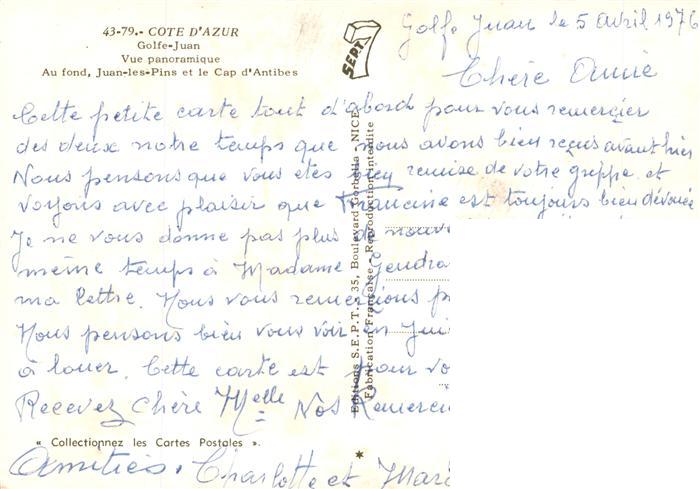 43-79.- COTE D'AZUR
Golfe-Juan
Vue panoramique
Au fond, Juan-les-Pins et le Cap d'Antibes
SEPT
Golfe Juan le 5 avril 1976
Chère Amie
Cette petite carte tout d'abord pour vous remercier
des deux notre temps que nous avons bien reçus avant hier
Nous pensons que vous etes bien remise de votre grippe. et
voyons avec plaisir que Francine est toujours bien dévouée
Je ne vous donne pas plus de nouv
même temps à Madame Jendra
ma lettre. Nous vous remercions p
Nous pensons bien vous voir en Jui
à louer. Cette carte est pour vo
Recevez Chère Melle Nos Remerci
Amitiés. Charlotte et Mari
« Collectionnez les Cartes Postales ».
Editions S.E.P.T., 35, Boulevard Gorbella - NICE
Fabrication Française - Reproduction interdite